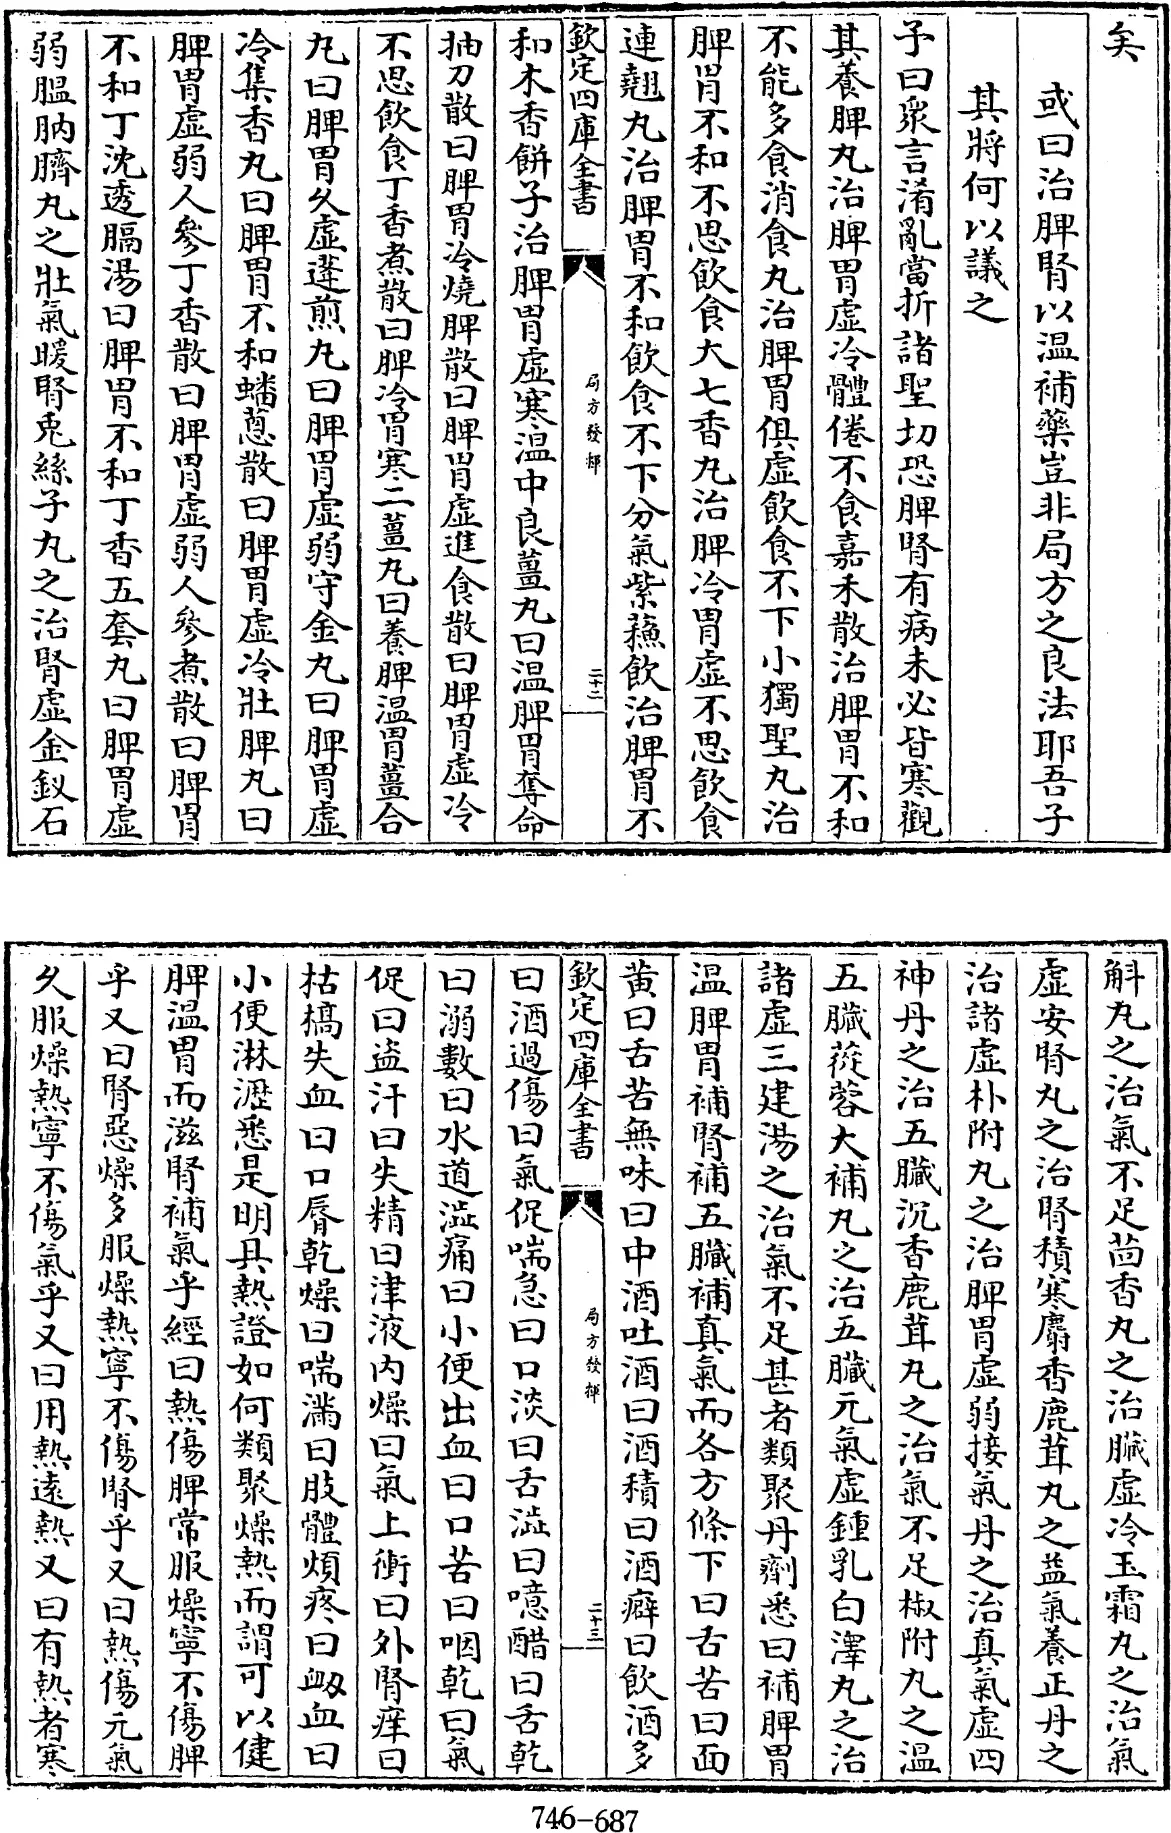 矣
或曰治脾腎以温補藥豈非局方之良法耶吾子
其將何以議之
予曰衆言淆亂當折諸聖切恐脾腎有病未必皆寒觀
其養脾丸治脾胃虚冷體倦不食嘉禾散治脾胃不和
不能多食消食丸治脾胃俱虚飲食不下小獨聖丸治
脾胃不和不思飲食大七香丸治脾冷胃虚不思飲食
連翹丸治脾胃不和飲食不下分氣紫蘓飲治脾胃不
欽定四庫全書
局方發揮
二十二
和木香餅子治脾胃虚寒温中良薑丸曰温脾胃奪命
抽刀散曰脾胃冷燒脾散曰脾胃虚進食散曰脾胃虚冷
不思飲食丁香煮散曰脾冷胃寒二薑丸曰養脾温胃薑合
丸曰脾胃乆虚蓬煎丸曰脾胃虚弱守金丸曰脾胃虚
冷集香丸曰脾胃不和蟠蔥散曰脾胃虚冷壯脾丸曰
脾胃虚弱人參丁香散曰脾胃虚弱人參煮散曰脾胃
不和丁沈透膈湯曰脾胃不和丁香五套丸曰脾胃虚
弱腽肭臍丸之壯氣暖腎兎絲子丸之治腎虚金釵石
斛丸之治氣不足茴香丸之治臟虚冷玉霜丸之治氣
虚安腎丸之治腎積寒麝香鹿茸丸之益氣養正丹之
治諸虚朴附丸之治脾胃虚弱接氣丹之治真氣虚四
神丹之治五臟沉香鹿茸丸之治氣不足椒附丸之温
五臟蓯蓉大補丸之治五臟元氣虚鍾乳白澤丸之治
諸虚三建湯之治氣不足甚者類聚丹劑悉曰補脾胃
温脾胃補腎補五臟補真氣而各方條下曰舌苦曰面
黄曰舌苦無味曰中酒吐酒曰酒積曰酒癖曰飲酒多
欽定四庫全書
局方發揮
二十三
曰酒過傷曰氣促喘急曰口淡曰舌澁曰噫醋曰舌乾
曰溺數曰水道澁痛曰小便出血曰口苦曰咽乾曰氣
促曰盗汗曰失精曰津液内燥曰氣上衝曰外腎痒曰
枯槁失血曰口脣乾燥曰喘滿曰肢體煩疼曰衂血曰
小便淋瀝悉是明具熱證如何類聚燥熱而謂可以健
脾温胃而滋腎補氣乎經曰熱傷脾常服燥寧不傷脾
乎又曰腎惡燥多服燥熱寧不傷腎乎又曰熱傷元氣
乆服燥熱寧不傷氣乎又曰用熱逺熱又曰有熱者寒
746-687